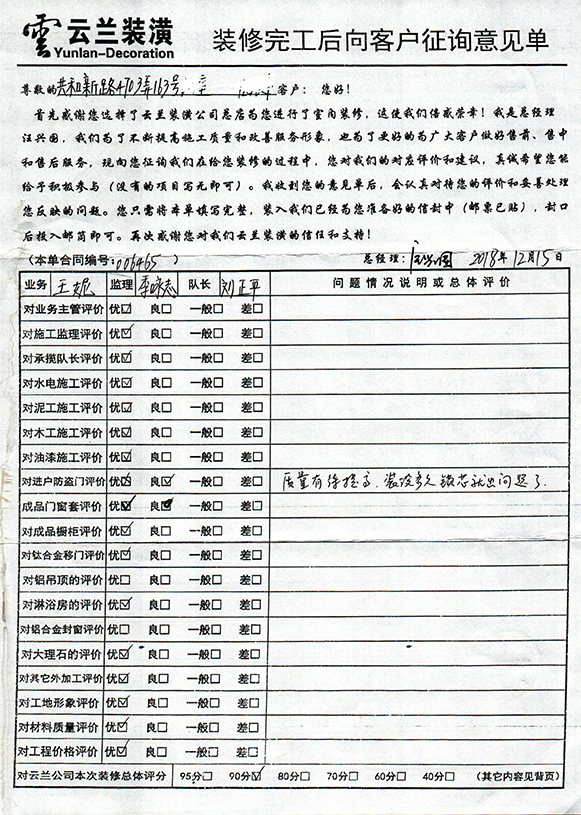 雲 云兰装潢
Yunlan-Decoration
装修完工后向客户征询意见单
尊敬的共和新路4703弄163号 客户： 您好！
首先感谢您选择了云兰装潢公司总店为您进行了室内装修，这使我们倍感荣幸！我是总经理
汪兴国，我们为了不断提高施工质量和改善服务形象，也为了更好的为广大客户做好售前、售中
和售后服务，现向您征询我们在给您装修的过程中，您对我们的对应评价和建议，真诚希望您能
给予积极参与（没有的项目写无即可）。我收到您的意见单后，会认真对待您的评价和妥善处理
您反映的问题。您只需将本单填写完整，装入我们已经为您准备好的信封中（邮票已贴），封口
后投入邮筒即可。再次感谢您对我们云兰装潢的信任和支持！
(本单合同编号：006465) 总经理：汪兴国 2018年12月15日
业务 王妮 监理 李咏志 队长 刘正平 问题情况说明或总体评价
对业务主管评价 优☑ 良□ 一般□ 差□
对施工监理评价 优☑ 良□ 一般□ 差□
对承揽队长评价 优☑ 良□ 一般□ 差□
对水电施工评价 优☑ 良□ 一般□ 差□
对泥工施工评价 优☑ 良□ 一般□ 差□
对木工施工评价 优☑ 良□ 一般□ 差□
对油漆施工评价 优☑ 良□ 一般□ 差□
对进户防盗门评价 优☑ 良☑ 一般□ 差□ 质量有待提高，装没多久锁芯就出问题了.
成品门窗套评价 优☑ 良☑ 一般□ 差□
对成品橱柜评价 优☑ 良□ 一般□ 差□
对钛合金移门评价 优☑ 良□ 一般□ 差□
对铝吊顶的评价 优□ 良□ 一般□ 差□
对淋浴房的评价 优☑ 良□ 一般□ 差□
对铝合金封窗评价 优□ 良□ 一般□ 差□
对大理石的评价 优☑ 良□ 一般□ 差□
对其它外加工评价 优☑ 良□ 一般□ 差□
对工地形象评价 优☑ 良□ 一般□ 差□
对材料质量评价 优☑ 良□ 一般□ 差□
对工程价格评价 优☑ 良□ 一般□ 差□
对云兰公司本次装修总体评分 95分□ 90分☑ 80分□ 70分□ 60分□ 40分□ (其它内容见背页)